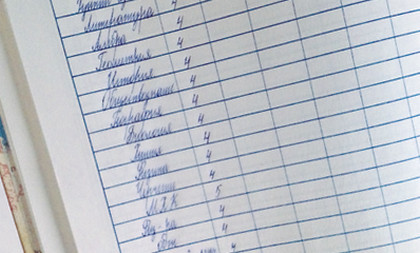 Литература 4
Алгебра 4
Геометрия 4
История 4
Обществознание 4
География 4
Биология 4
Химия 4
Физика 4
Черчение 4
М.Х.К 5
Физ-ра 4
4
4